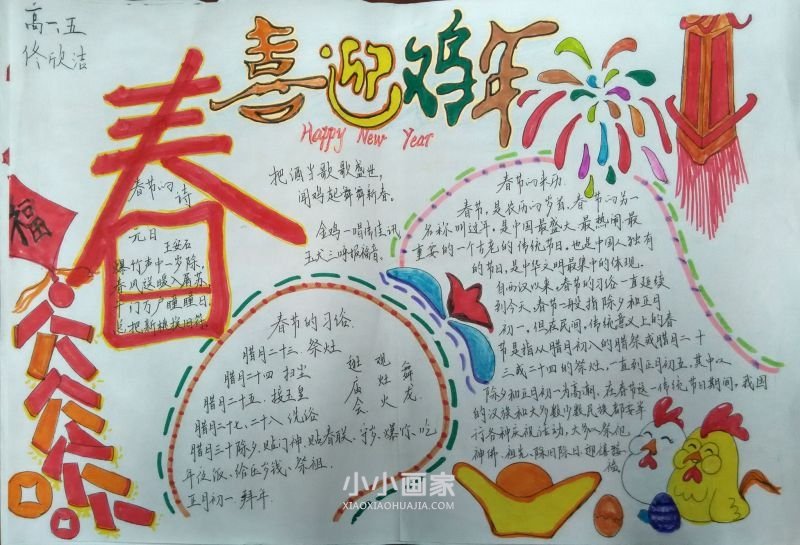 高一、五
佟欣洁
喜迎鸡年
Happy New Year
春
福
春节的诗
元日
王安石
爆竹声中一岁除,
春风送暖入屠苏
千门万户曈曈日
总把新桃换旧符
把酒当歌歌盛世,
闻鸡起舞舞新春。
金鸡一唱传佳讯
玉犬三呼报福音。
春节的来历
春节,是农历的岁首,春节的另一
名称叫过年,是中国最盛大、最热闹、最
重要的一个古老的传统节日,也是中国人独有
的节日,是中华文明最集中的体现。
自西汉以来,春节的习俗一直延续
到今天,春节一般指除夕和正月
初一,但在民间,传统意义上的春
节是指从腊月初八的腊祭或腊月二十
三或二十四的祭灶,一直到正月初五,其中以
除夕和正月初一为高潮,在春节这一传统节日期间,我国
的汉族和大多数少数民族都要举
行各种庆祝活动,大多以祭祀
神佛、祖先、除旧
春节的习俗
腊月二十三、祭灶
腊月二十四 扫尘
腊月二十五、接玉皇
腊月二十七,二十八 洗浴
腊月三十除夕、贴门神、贴春联、守岁、爆竹、吃
年夜饭、给压岁钱、祭祖
正月初一 拜年
逛庙会
观灶火
舞龙
小小画家
XIAOXIAOHUAJIA.COM